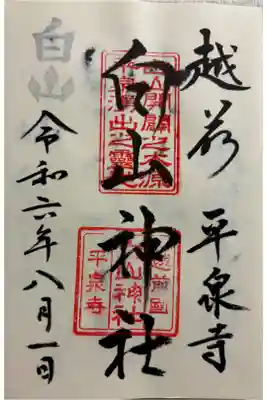 越前 平泉寺
白山神社
白山
令和六年八月一日
越前国
白山神社
平泉寺